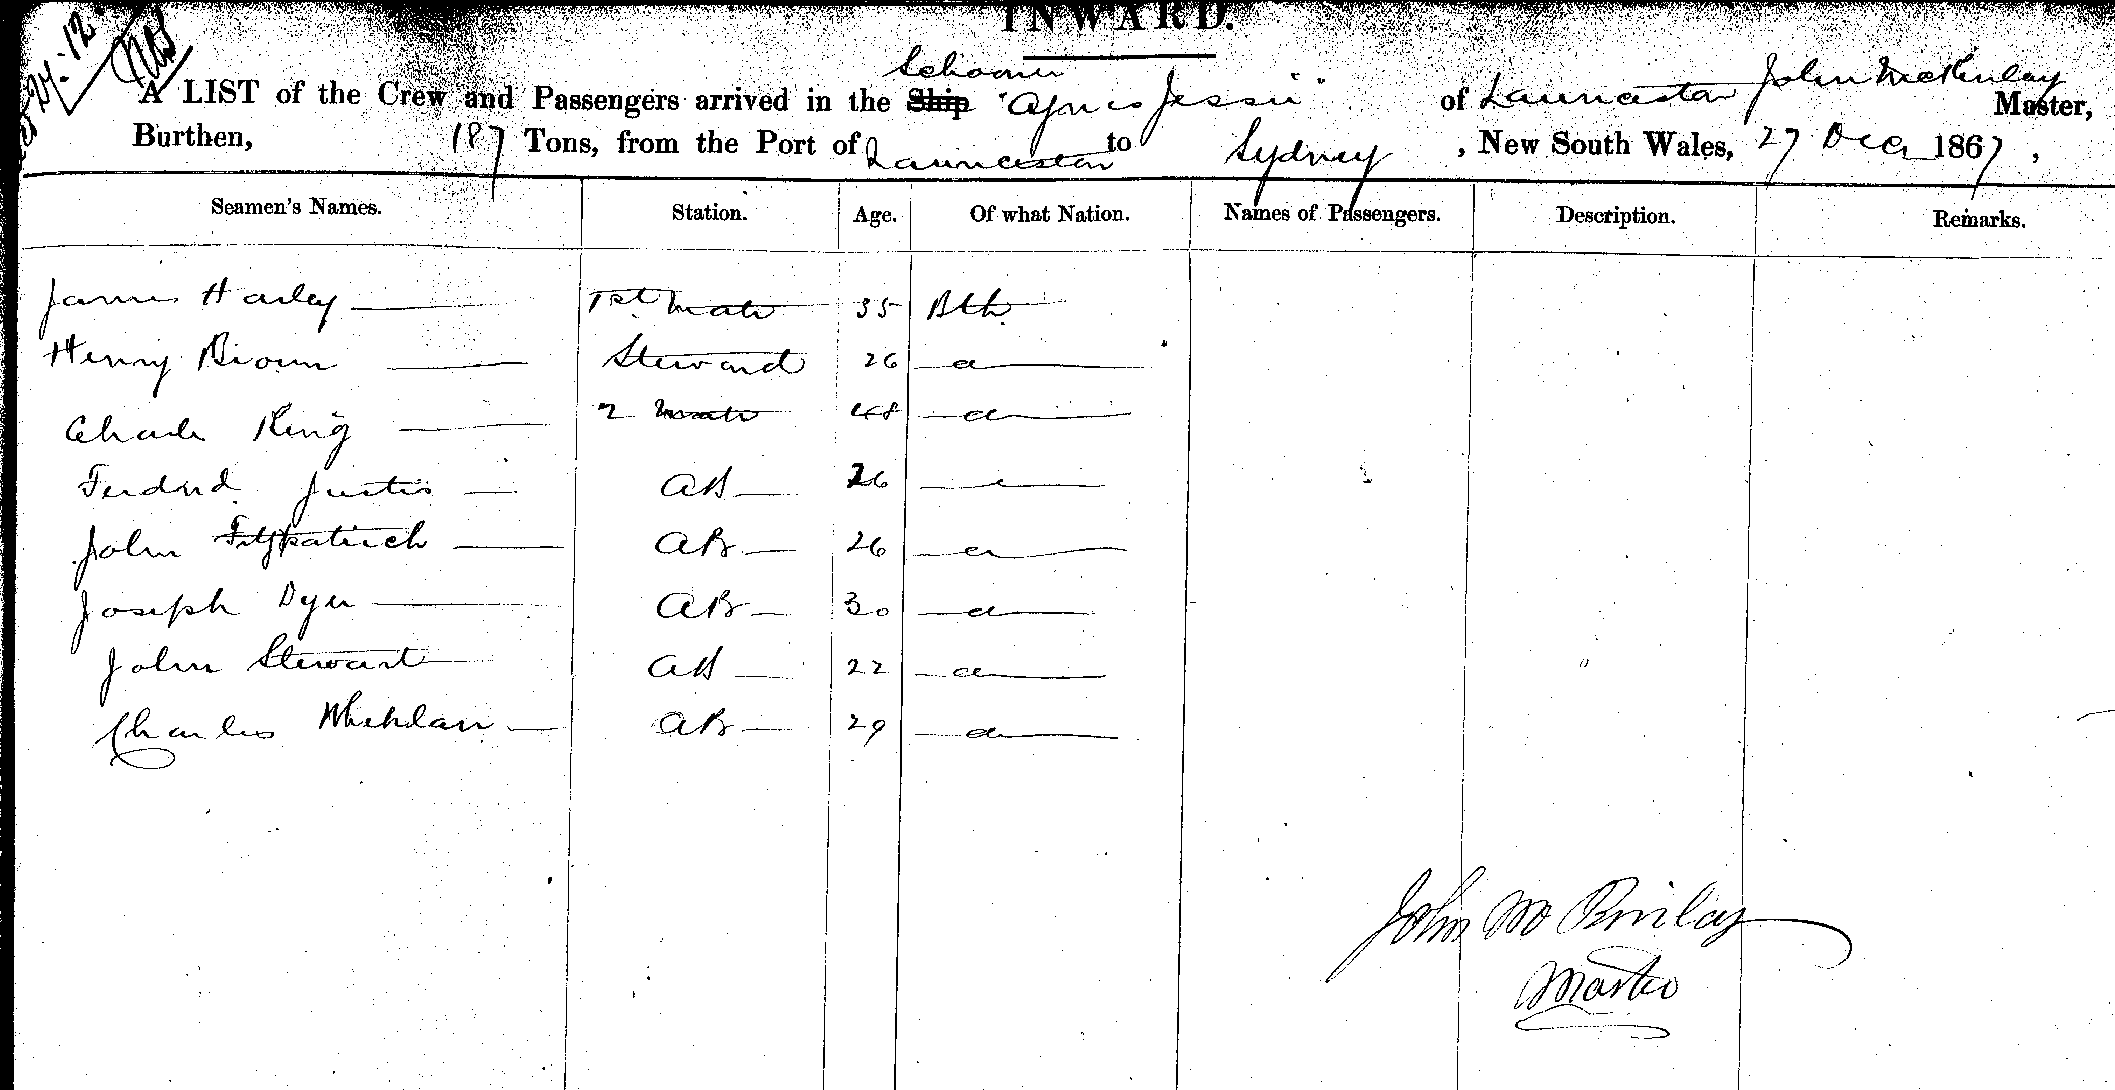 INWARD.
24.12.
Schooner
A LIST of the Crew and Passengers arrived in the Ship "Agnes Jessie" of Launceston John McKinlay Master,
Burthen, 187 Tons, from the Port of Launceston to Sydney, New South Wales, 27 Decr 1867,
Seamen's Names. Station. Age. Of what Nation. Names of Passengers. Description. Remarks.
James Harley 1st Mate 35 Bth
Henry Brown Steward 26 do
Charles King 2 Mate 48 do
Ferdnd. Justis AB 26
John Fitzpatrick AB 26 do
Joseph Dyer AB 30 do
John Stewart AB 22 do
Charles AB 29 do
John McKinlay
Master